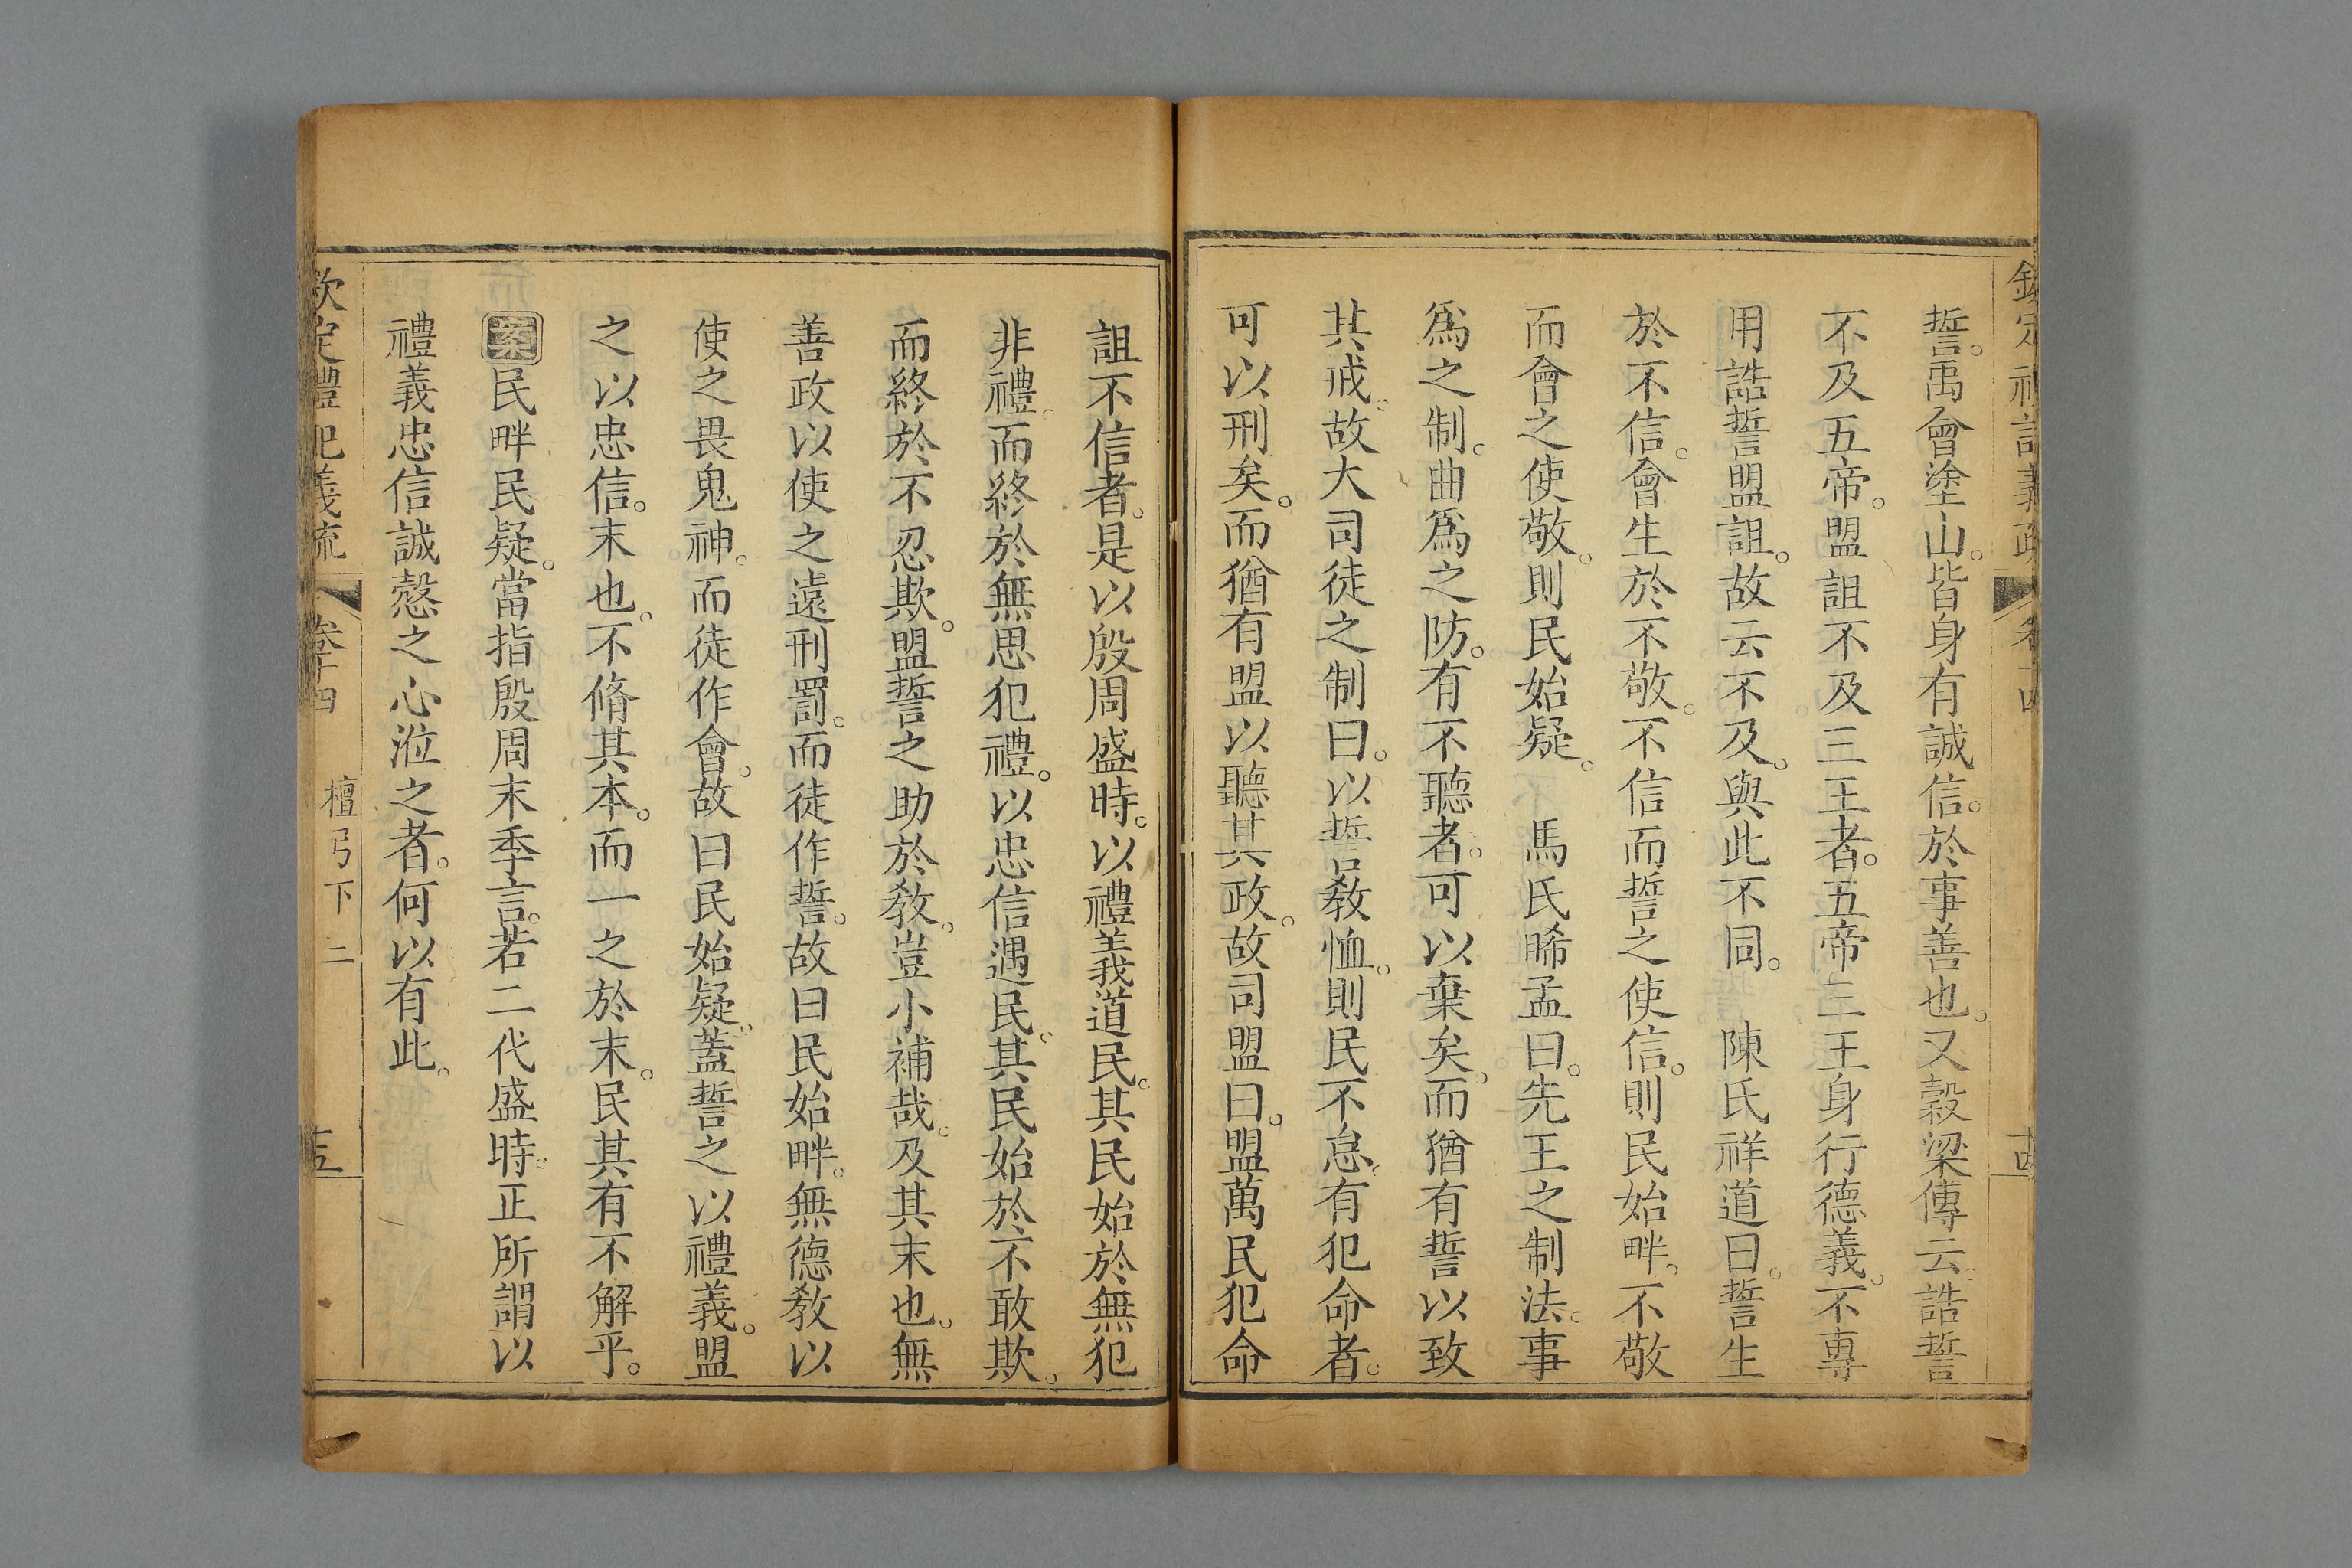 欽定禮記義疏 卷十四 十四
誓。禹會塗山。皆身有誠信。於事善也。又穀梁傳云。誥誓
不及五帝。盟詛不及三王者。五帝三王身行德義。不專
用誥誓盟詛。故云不及。與此不同。 陳氏祥道曰。誓生
於不信。會生於不敬。不信而誓之使信。則民始畔。不敬
而會之使敬。則民始疑。 馬氏晞孟曰。先王之制法。事
爲之制。曲爲之防。有不聽者。可以棄矣。而猶有誓以致
其戒。故大司徒之制曰。以誓敎恤。則民不怠。有犯命者。
可以刑矣。而猶有盟以聽其政。故司盟曰。盟萬民犯命
詛不信者。是以殷周盛時。以禮義道民。其民始於無犯
非禮。而終於無思犯禮。以忠信遇民。其民始於不敢欺。
而終於不忍欺。盟誓之助於敎。豈小補哉。及其末也。無
善政以使之遠刑罰。而徒作誓。故曰民始畔。無德敎以
使之畏鬼神。而徒作會。故曰民始疑。蓋誓之以禮義。盟
之以忠信。末也。不脩其本。而一之於末。民其有不解乎。
案民畔民疑。當指殷周末季言。若二代盛時。正所謂以
禮義忠信誠慤之心涖之者。何以有此。
欽定禮記義疏 卷十四 檀弓下二 十五